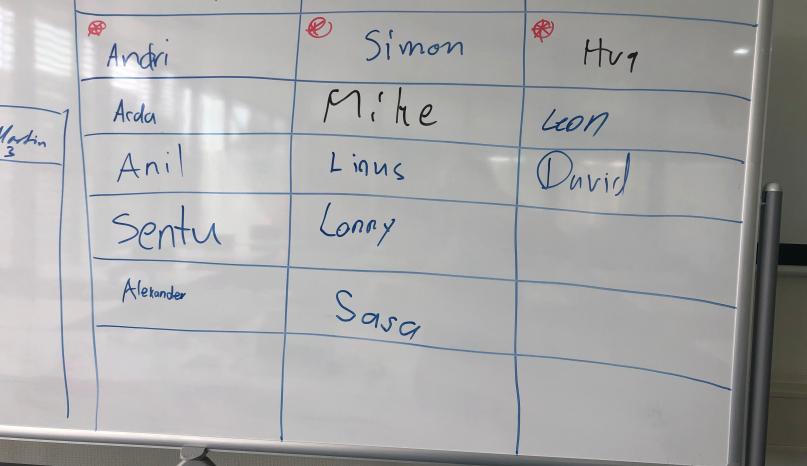 Andri
Simon
Hug
Arda
Mike
Leon
Martin
3
Anil
Linus
David
Sentu
Lonny
Alexander
Sasa